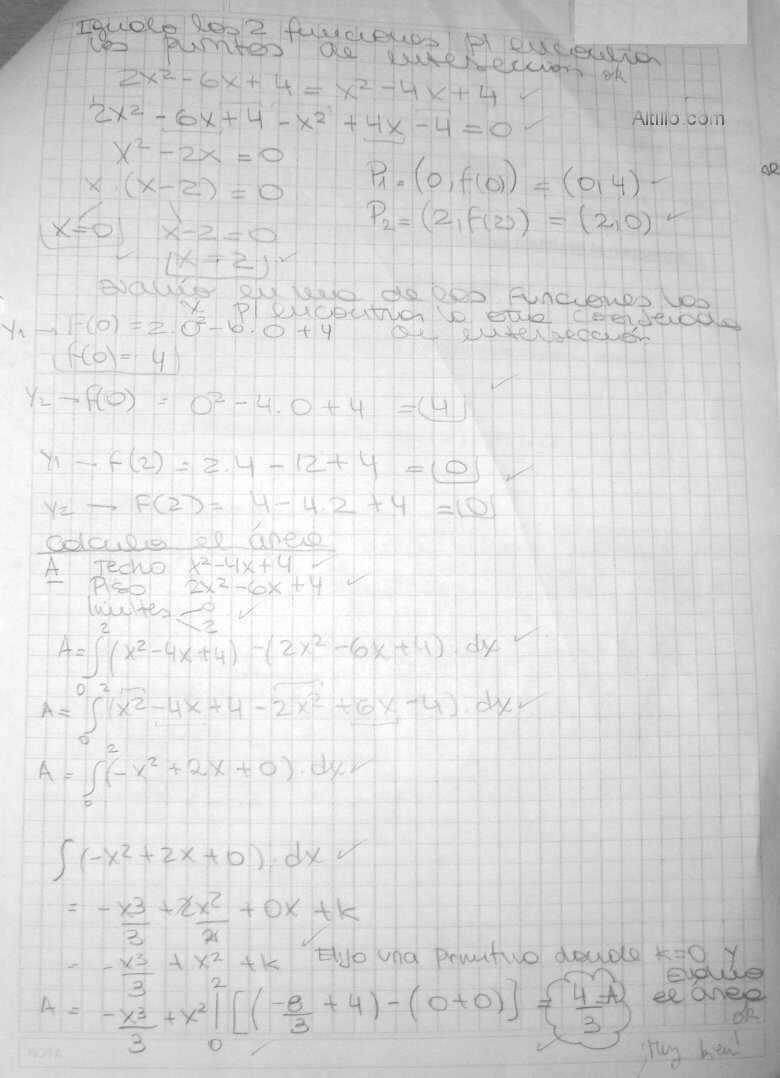 Igualo las 2 funciones p/ encontrar
los puntos de intersección ok
2x² - 6x + 4 = x² - 4x + 4 ✓
2x² - 6x + 4 - x² + 4x - 4 = 0 ✓
Altillo.com
x² - 2x = 0
x · (x - 2) = 0
P₁ = (0, f(0)) = (0, 4) ✓
P₂ = (2, f(2)) = (2, 0) ✓
x = 0 x - 2 = 0
✓ x = 2 ✓
evalúo en una de las funciones los
x p/ encontrar la otra coordenada
Y₁ → f(0) = 2.0² - 6.0 + 4 de intersección
f(0) = 4
Y₂ → f(0) = 0² - 4.0 + 4 = 4 ✓
Y₁ → f(2) = 2.4 - 12 + 4 = 0 ✓
Y₂ → f(2) = 4 - 4.2 + 4 = 0
Calculo el área
A Techo x² - 4x + 4 ✓
Piso 2x² - 6x + 4 ✓
límites 0 2 ✓
A = ∫₀² (x² - 4x + 4) - (2x² - 6x + 4) . dx ✓
A = ∫₀² (x² - 4x + 4 - 2x² + 6x - 4) . dx ✓
A = ∫₀² (-x² + 2x + 0) . dx ✓
∫ (-x² + 2x + 0) . dx ✓
= -x³/3 + 2x²/2 + 0x + k
= -x³/3 + x² + k ✓ Elijo una primitiva donde k = 0 y
evalúo
A = -x³/3 + x² |₀² [(-8/3 + 4) - (0 + 0)] = 4/3 = A el área
ok
✓ ✓ ¡Muy bien!
NOTA